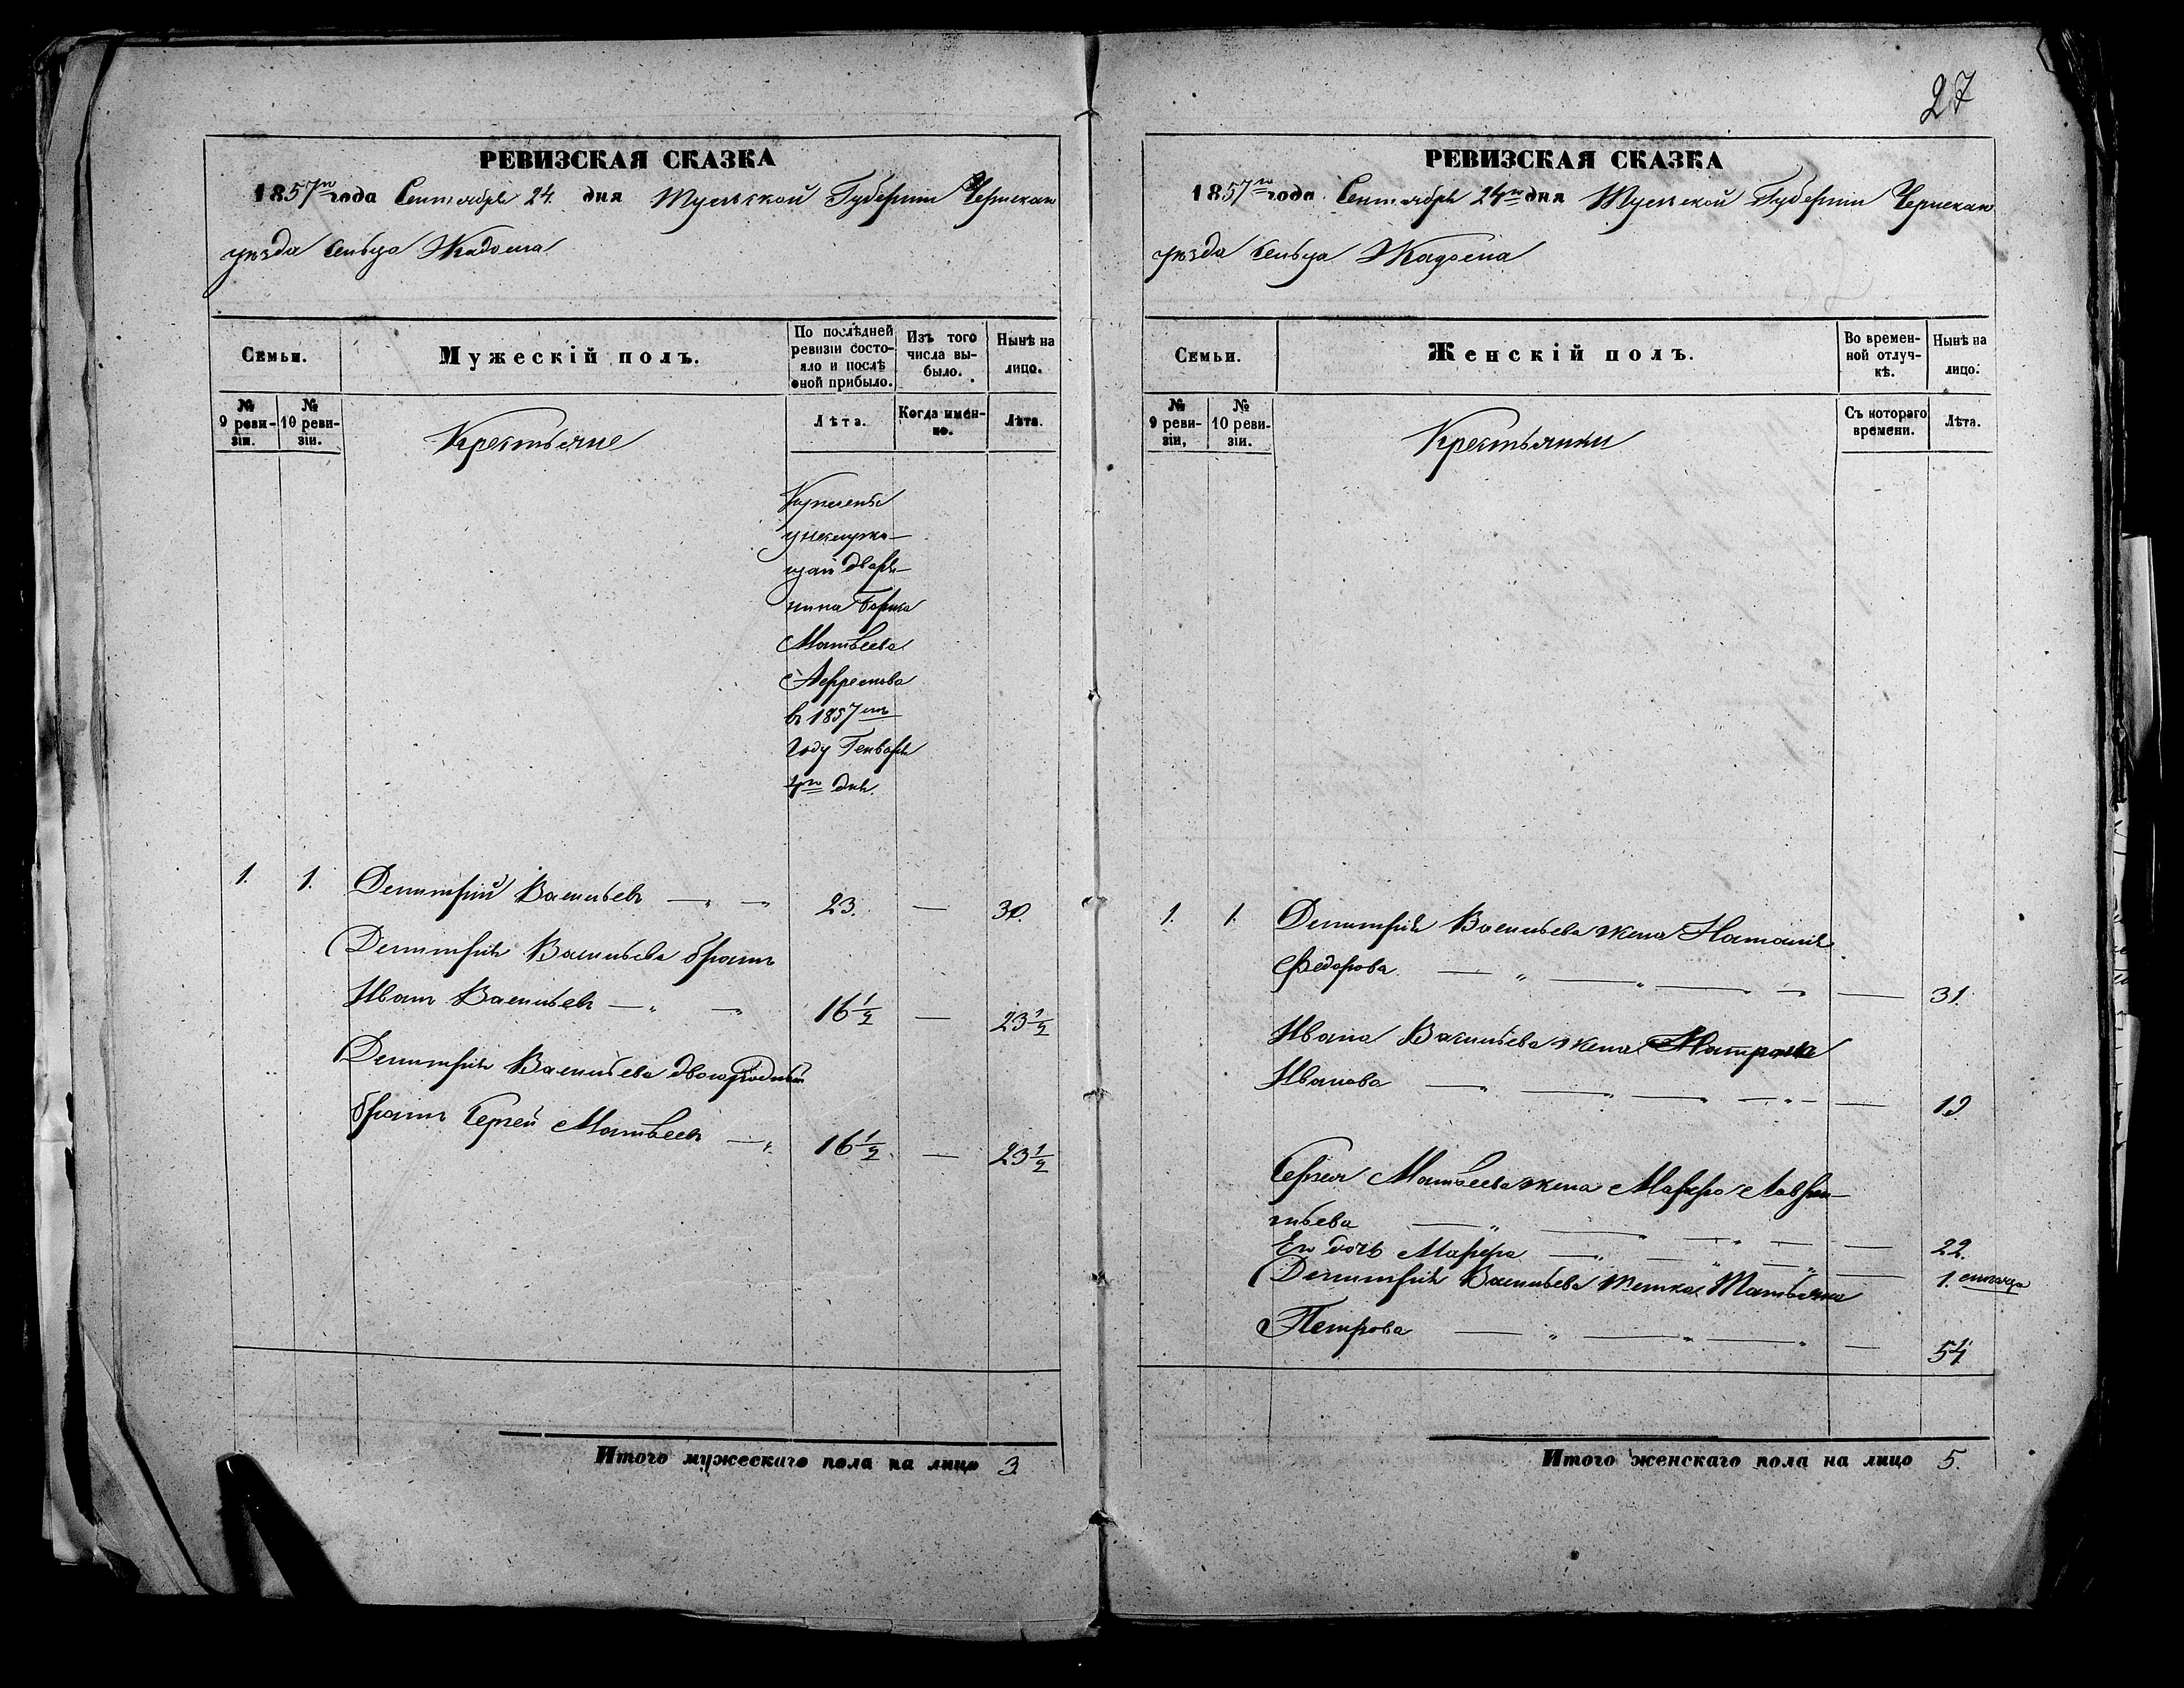 27
РЕВИЗСКАЯ СКАЗКА
1857го года Сентября 24. дня Тульской Губернии Чернскаго
уѣзда сельца Жадома
Семьи.
Мужескій полъ.
По послѣдней ревизіи состояло и послѣ оной прибыло.
Изъ того числа выбыло.
Нынѣ на лицо.
№ 9 ревизіи.
№ 10 ревизіи.
Крестьяне
Лѣта.
Когда именно.
Лѣта.
Куплены
у
дворя-
нина
Матвеева
в 1857мъ
Году Генваря
дня.
1. 1. Демитрий Васильевъ — „ — 23. — 30.
Демитрия Васильева братъ
Иванъ Васильевъ — „ — 16 1/2 — 23 1/2
Демитрия Васильева двоюродный
братъ Сергей Матвеевъ — „ 16 1/2 — 23 1/2
Итого мужескаго пола на лицо 3.
РЕВИЗСКАЯ СКАЗКА
1857го года Сентября 24го дня Тульской Губернии Чернскаго
уѣзда сельца Жадома
Семьи.
Женскій полъ.
Во временной отлучкѣ.
Нынѣ на лицо.
№ 9 ревизіи,
№ 10 ревизіи.
Крестьянки
Съ котораго времени.
Лѣта.
1. 1. Демитрия Васильева жена Наталия
Федорова — „ — „ — — — 31.
Ивана Васильева жена Матрона
Иванова — „ — „ — — „ — — 19.
Сергея Матвеева жена Марфа Лаврен-
тьева — „ — „ — „ — — 22.
Его дочь Марфа — „ — „ — „ — 1.
Демитрия Васильева тетка Татьяна
Петрова — „ — „ — „ — 54
Итого женскаго пола на лицо 5.